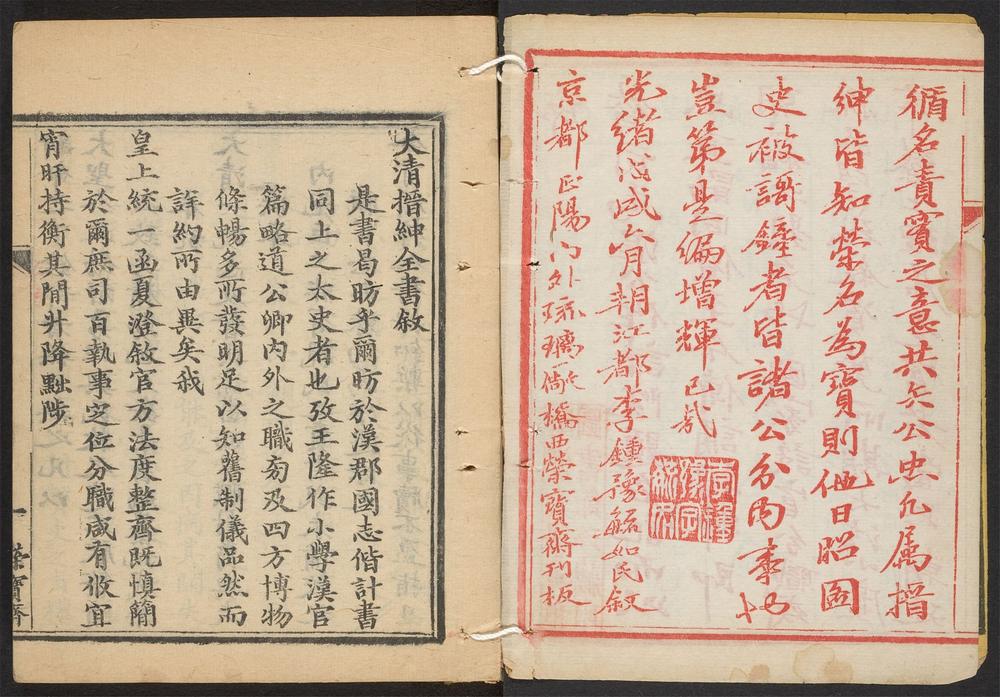 循名責實之意共矢公忠凡属搢
紳皆知榮名為寶則他日昭圖
史被謌鐘者皆諸公分內事也
豈第是編增輝已哉
光緒戊戌六月朔江都李鍾豫毓如氏敘
京都正陽門外琉璃廠橋西榮寶齋刊板
大清搢紳全書敘
是書曷昉乎爾昉於漢郡國志偕計書
同上之太史者也攷王隆作小學漢官
篇略道公卿內外之職旁及四方博物
條暢多所發明足以知舊制儀品然而
詳約所由異矣我
皇上統一函夏澄敘官方法度整齊既慎簡
於爾庶司百執事定位分職咸有攸宜
宵旰持衡其間升降黜陟
一 榮寶齋